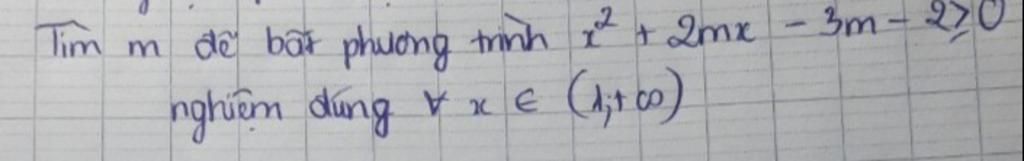 Tìm m để bất phương trình x² + 2mx - 3m - 2 ≥ 0
nghiệm đúng ∀ x ∈ (1;+∞)